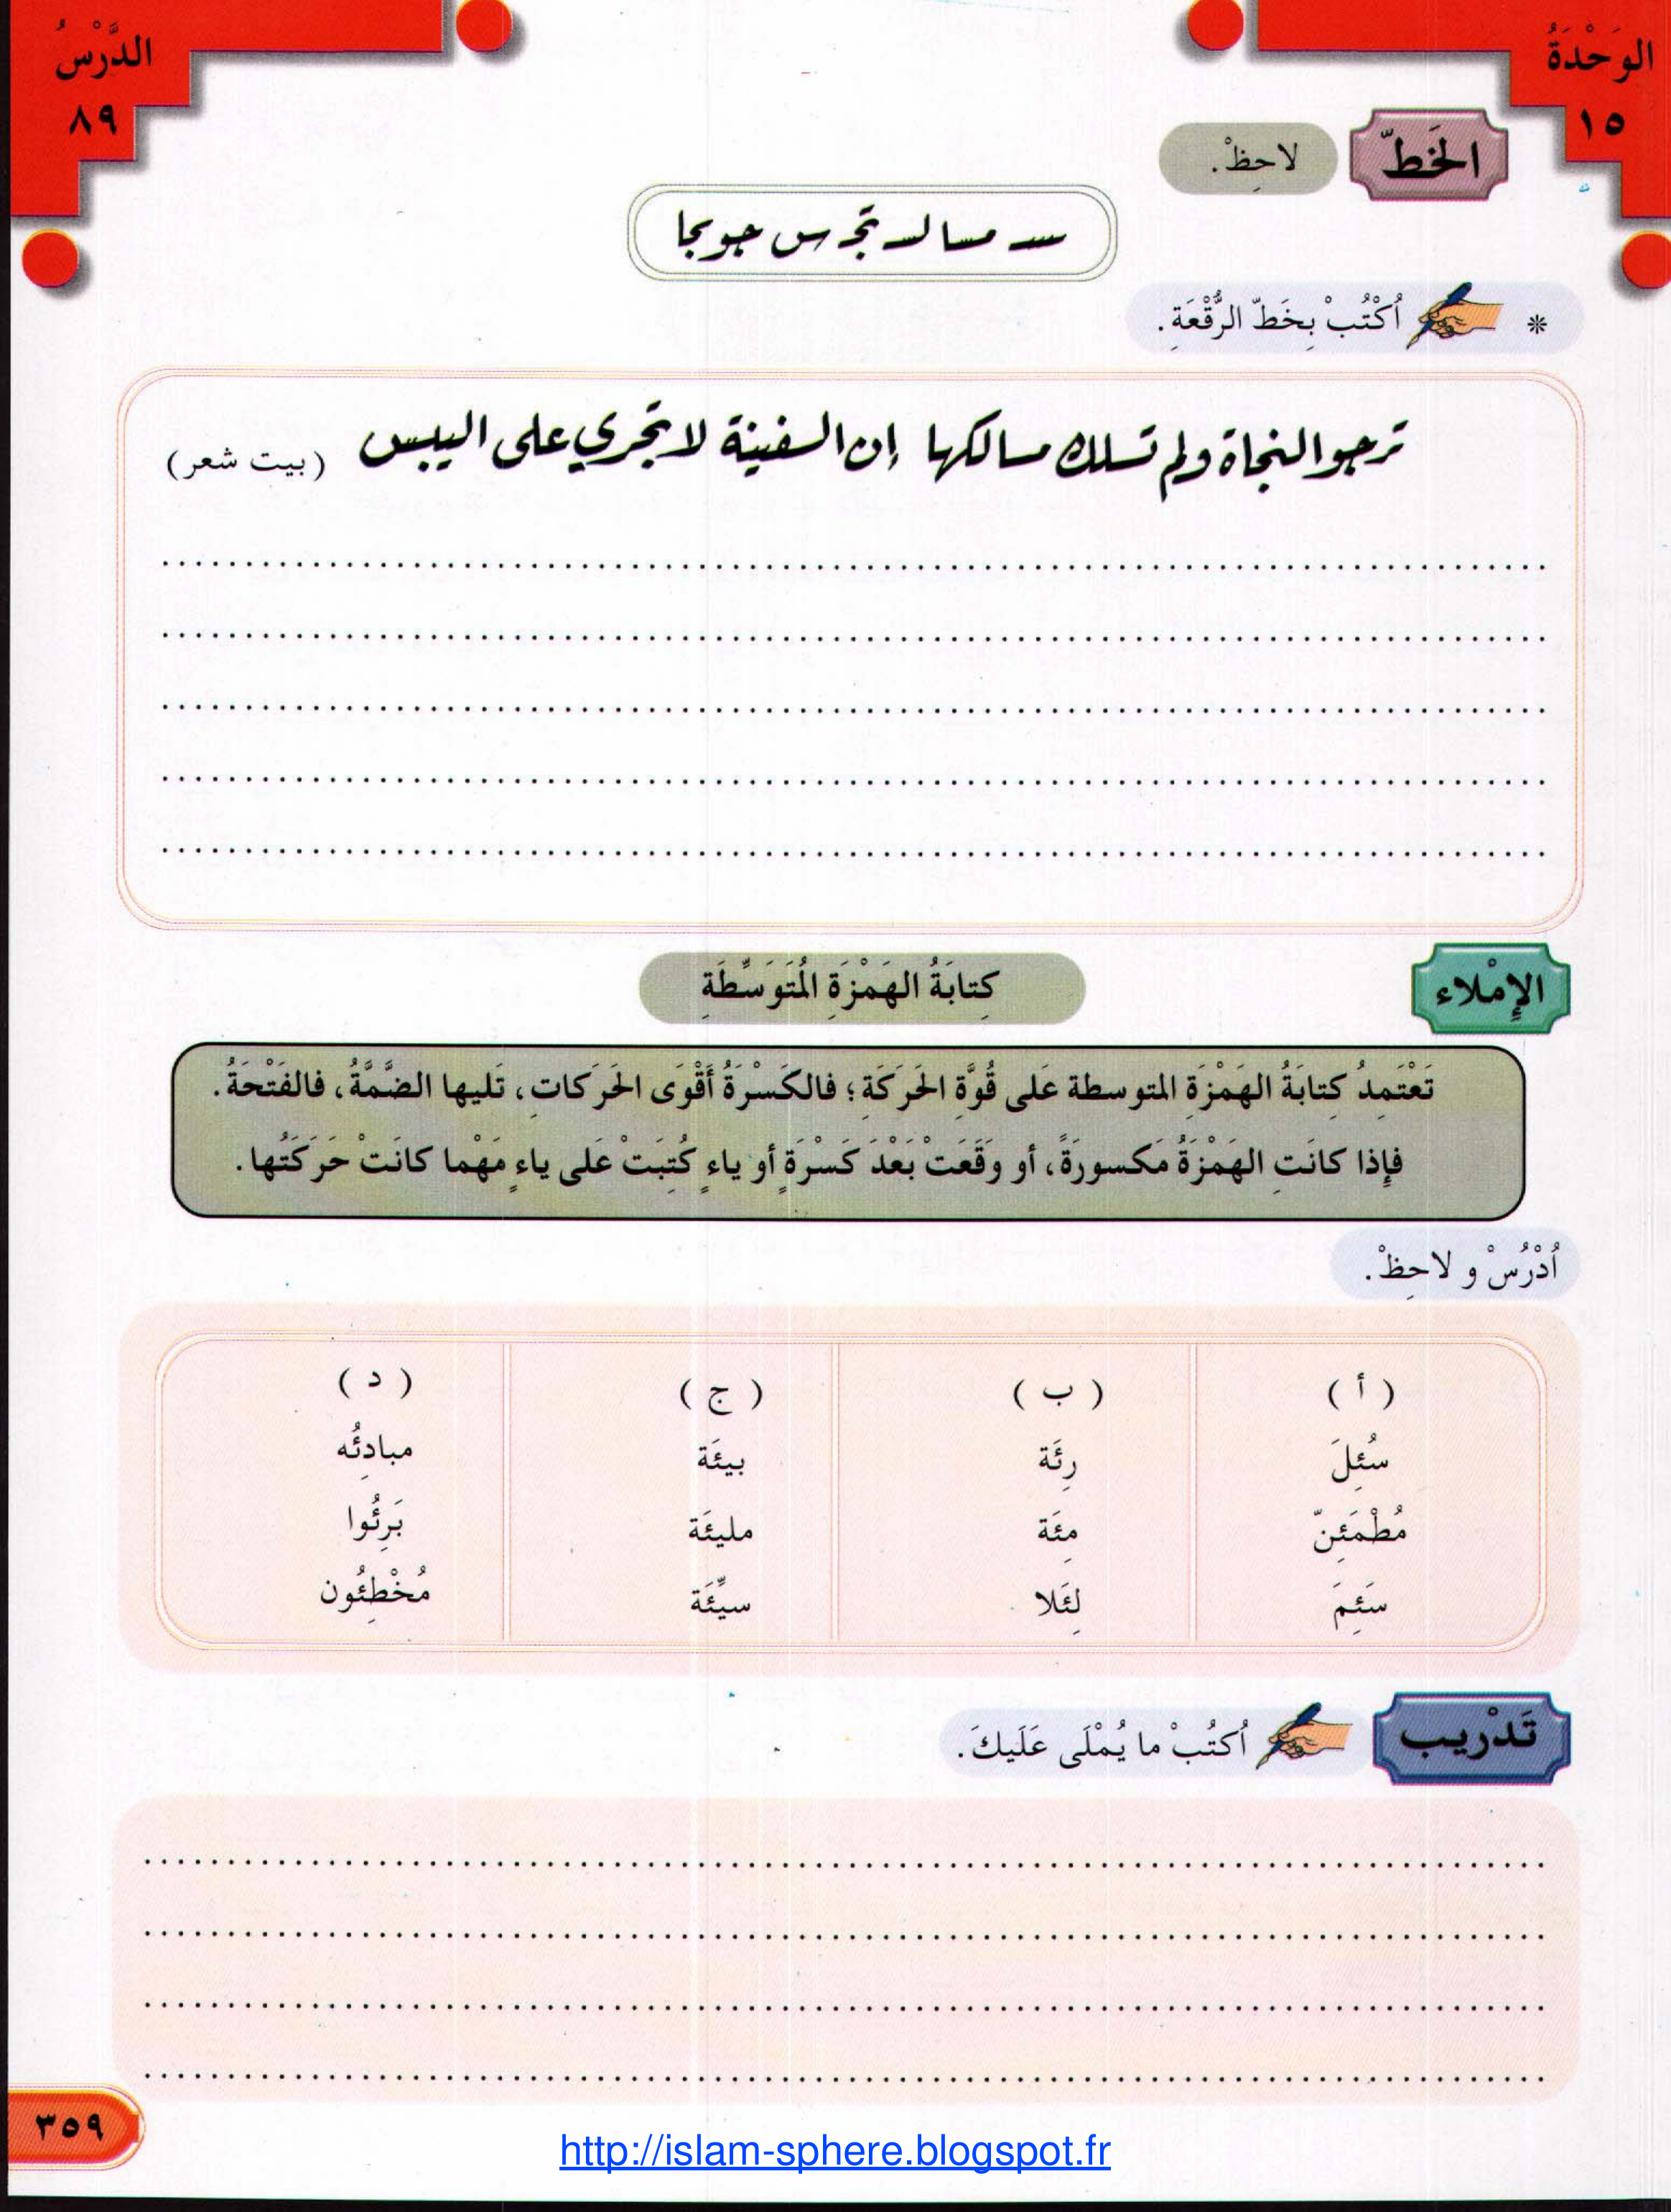 الوَحْدَةُ
١٥
الدَّرْسُ
٨٩
الخَطّ
لاحِظْ.
* اُكْتُبْ بِخَطّ الرُّقْعَةِ.
ترجو النجاة ولم تسلك مسالكها إن السفينة لا تجري على اليبس (بيت شعر)
الإِمْلاء
كِتابَةُ الهَمْزَةِ المُتَوَسِّطَةِ
تَعْتَمِدُ كِتابَةُ الهَمْزَةِ المتوسطة عَلى قُوَّةِ الحَرَكَةِ؛ فالكَسْرَةُ أَقْوَى الحَرَكاتِ، تَليها الضَّمَّةُ، فالفَتْحَةُ.
فإِذا كانَتِ الهَمْزَةُ مَكسورَةً، أو وَقَعَتْ بَعْدَ كَسْرَةٍ أو ياءٍ كُتِبَتْ عَلى ياءٍ مَهْما كانَتْ حَرَكَتُها.
اُدْرُسْ و لاحِظْ.
( أ ) ( ب ) ( ج ) ( د )
سُئِلَ رِئَة بيئَة مبادِئُه
مُطْمَئِنّ مِئَة مليئَة بَرِئُوا
سَئِمَ لِئَلا سيِّئَة مُخْطِئُون
تَدْريب
اُكتُبْ ما يُمْلَى عَلَيكَ.
٣٥٩
http://islam-sphere.blogspot.fr